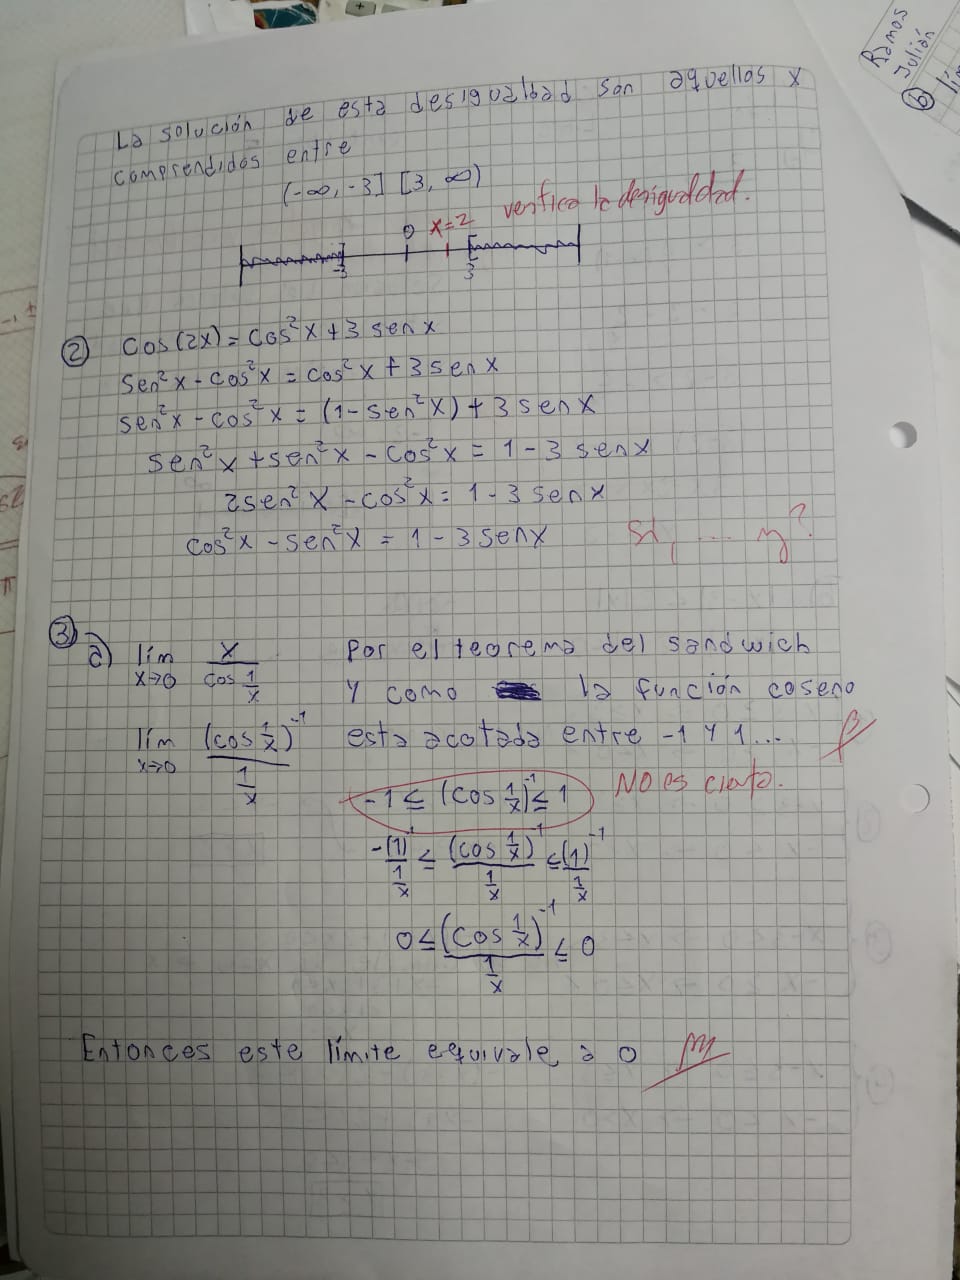 La solución de esta desigualdad son aquellos x
comprendidos entre
(-∞, -3] [3, ∞)
0 x=2 verifica la desigualdad.
-3 3
② cos(2x) = cos²x + 3 sen x
sen²x - cos²x = cos²x + 3 sen x
sen²x - cos²x = (1 - sen²x) + 3 sen x
sen²x + sen²x - cos²x = 1 - 3 sen x
2sen²x - cos²x = 1 - 3 sen x
cos²x - sen²x = 1 - 3 sen x Si, .... y?
③ a) lím x→0 x / cos 1/x Por el teorema del sandwich
y como la función coseno
lím x→0 (cos 1/x)⁻¹ / 1/x esta acotada entre -1 y 1...
-1 ≤ (cos 1/x)⁻¹ ≤ 1 NO es cierto.
-(1)⁻¹ / 1/x ≤ (cos 1/x)⁻¹ / 1/x ≤ (1)⁻¹ / 1/x
0 ≤ (cos 1/x)⁻¹ / 1/x ≤ 0
Entonces este límite equivale a 0
Ramos
Julián
⑥ lím